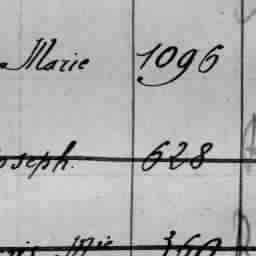 Marie 1096
oseph. 628
Mie 360